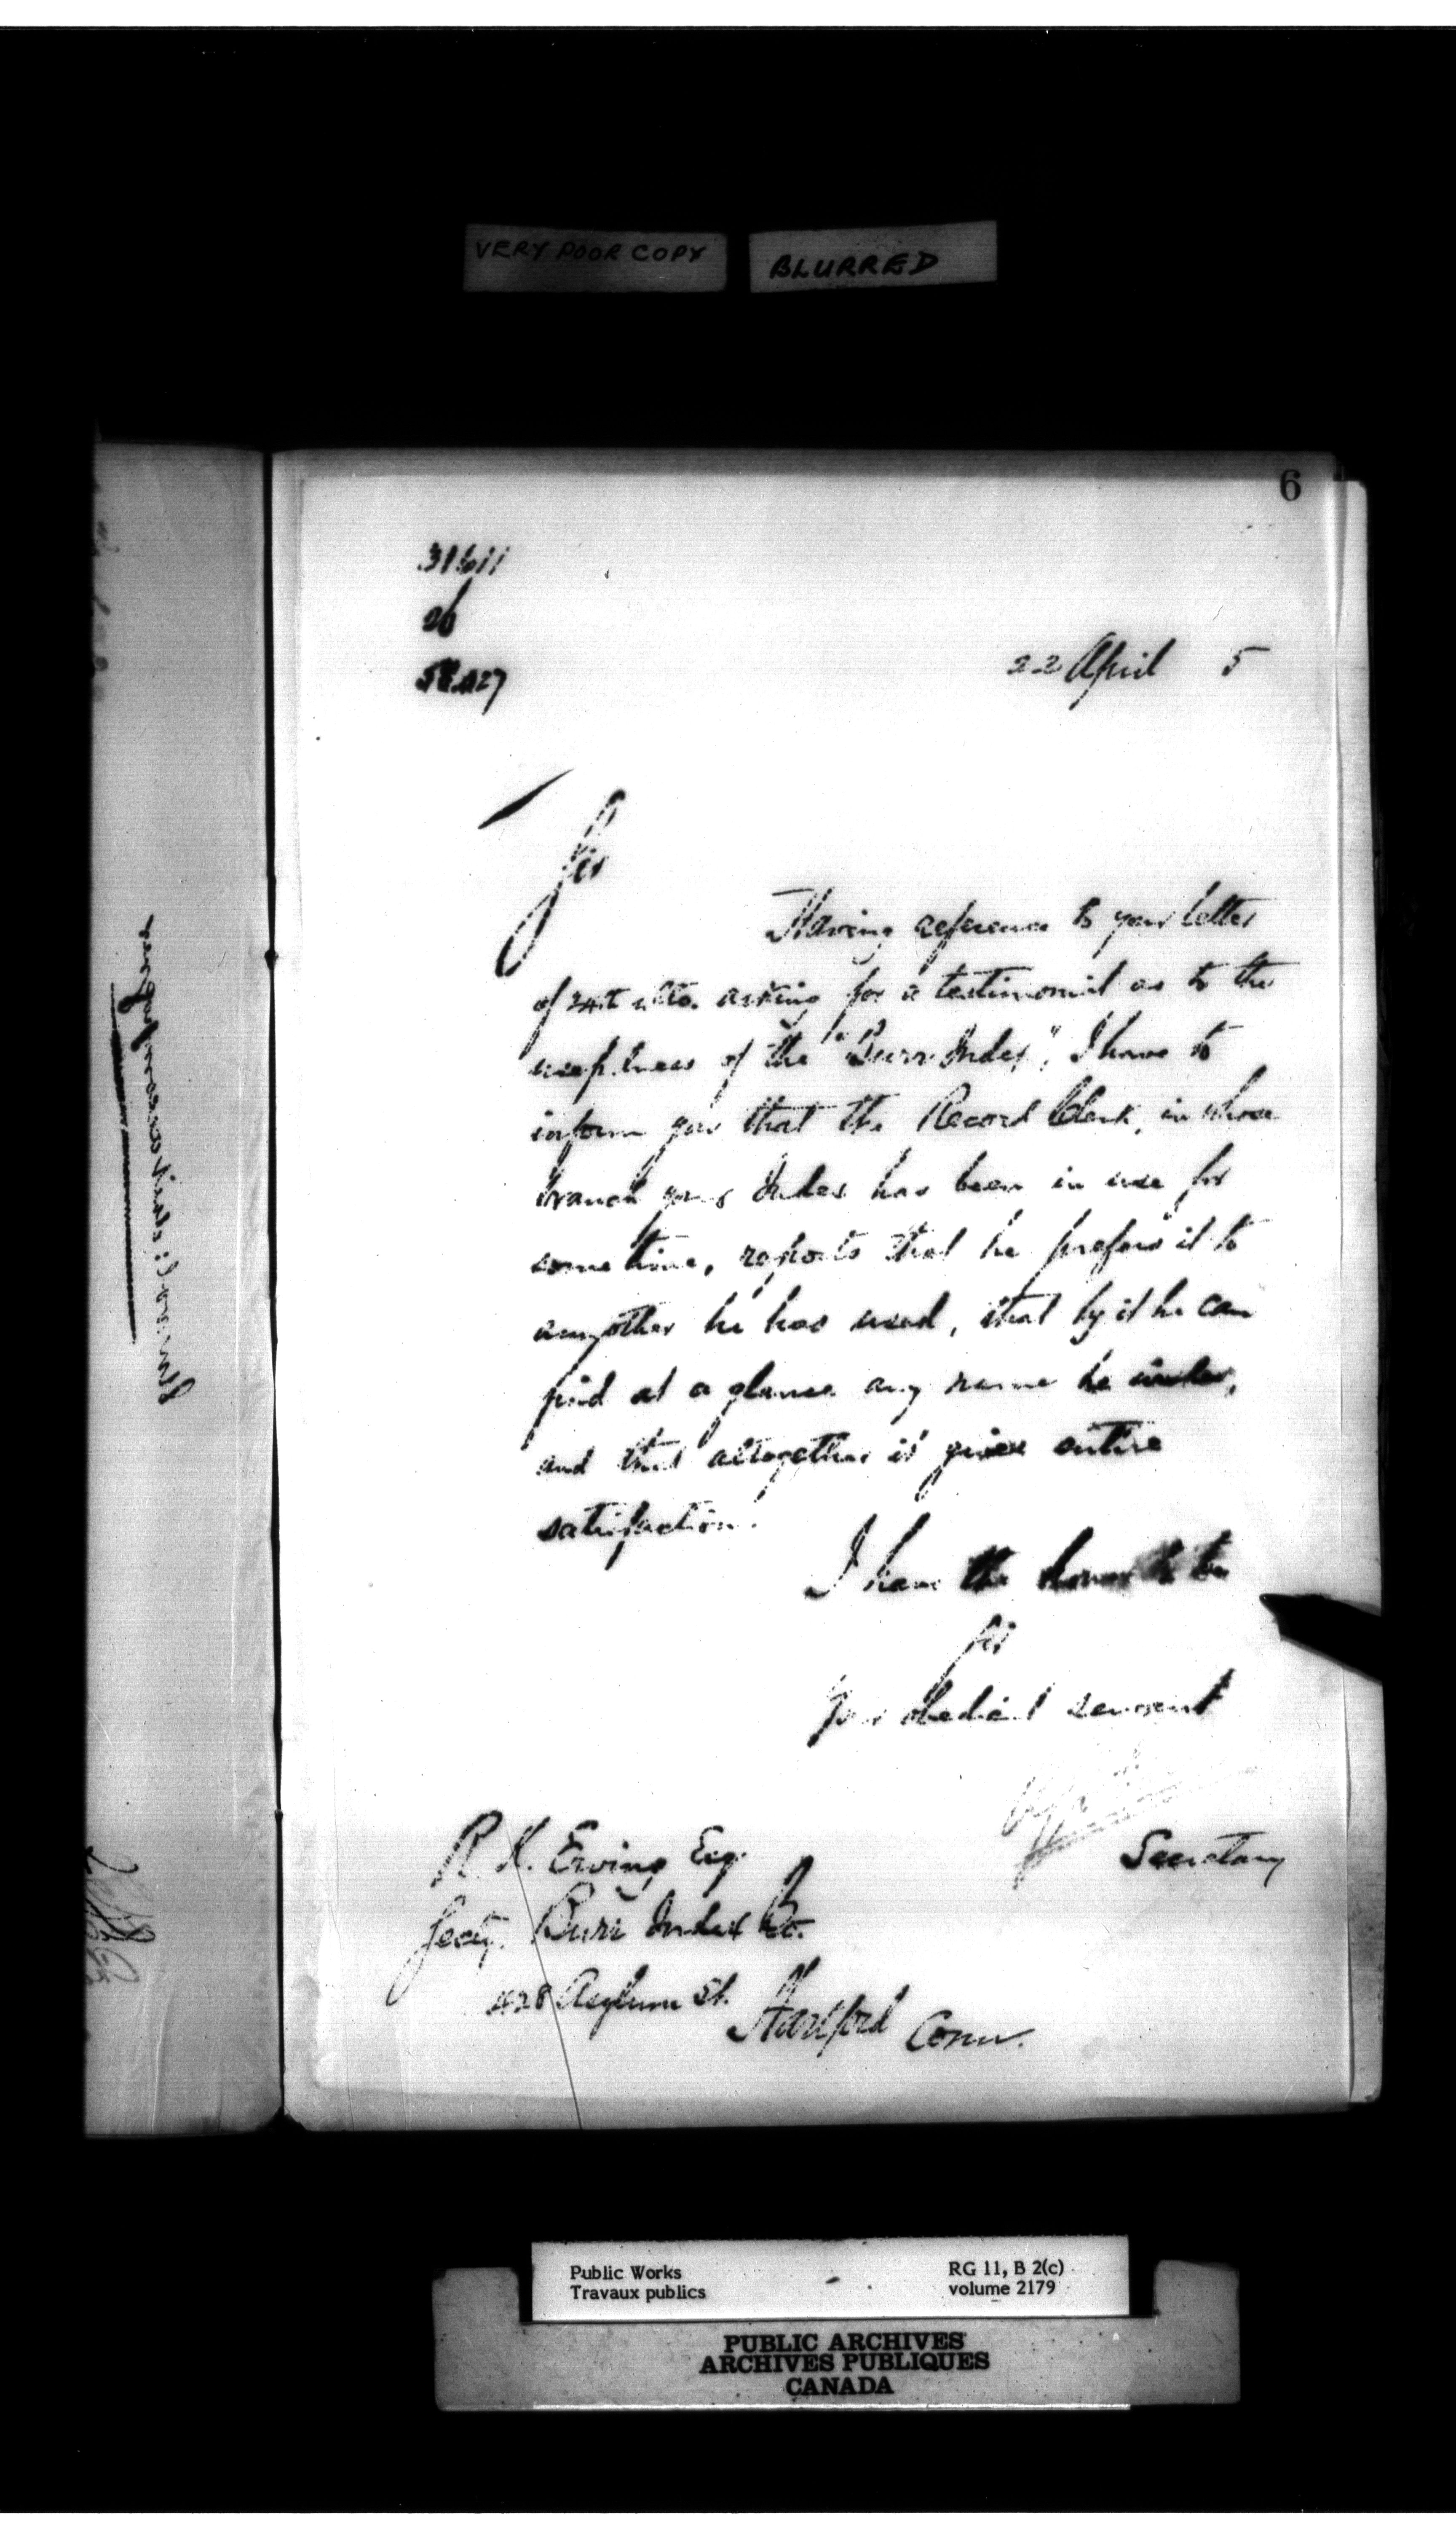 VERY POOR COPY BLURRED
6
31611
26
22 April 5
Sir
Having reference to your letter
of 24th ulto. asking for a testimonial as to the
usefulness of the "Burr Index", I have to
inform you that the Record Clerk, in whose
branch your Index has been in use for
some time, reports that he prefers it to
any other he has used, that by it he can
find at a glance any name he wishes,
and that altogether it gives entire
satisfaction.
I have the honor to be
Sir
Your obedient servant
Secretary
R. K. Erving Esq.
Secty. Burr Index Co.
428 Asylum St.
Hartford Conn.
Public Works
Travaux publics
RG 11, B 2(c)
volume 2179
PUBLIC ARCHIVES
ARCHIVES PUBLIQUES
CANADA